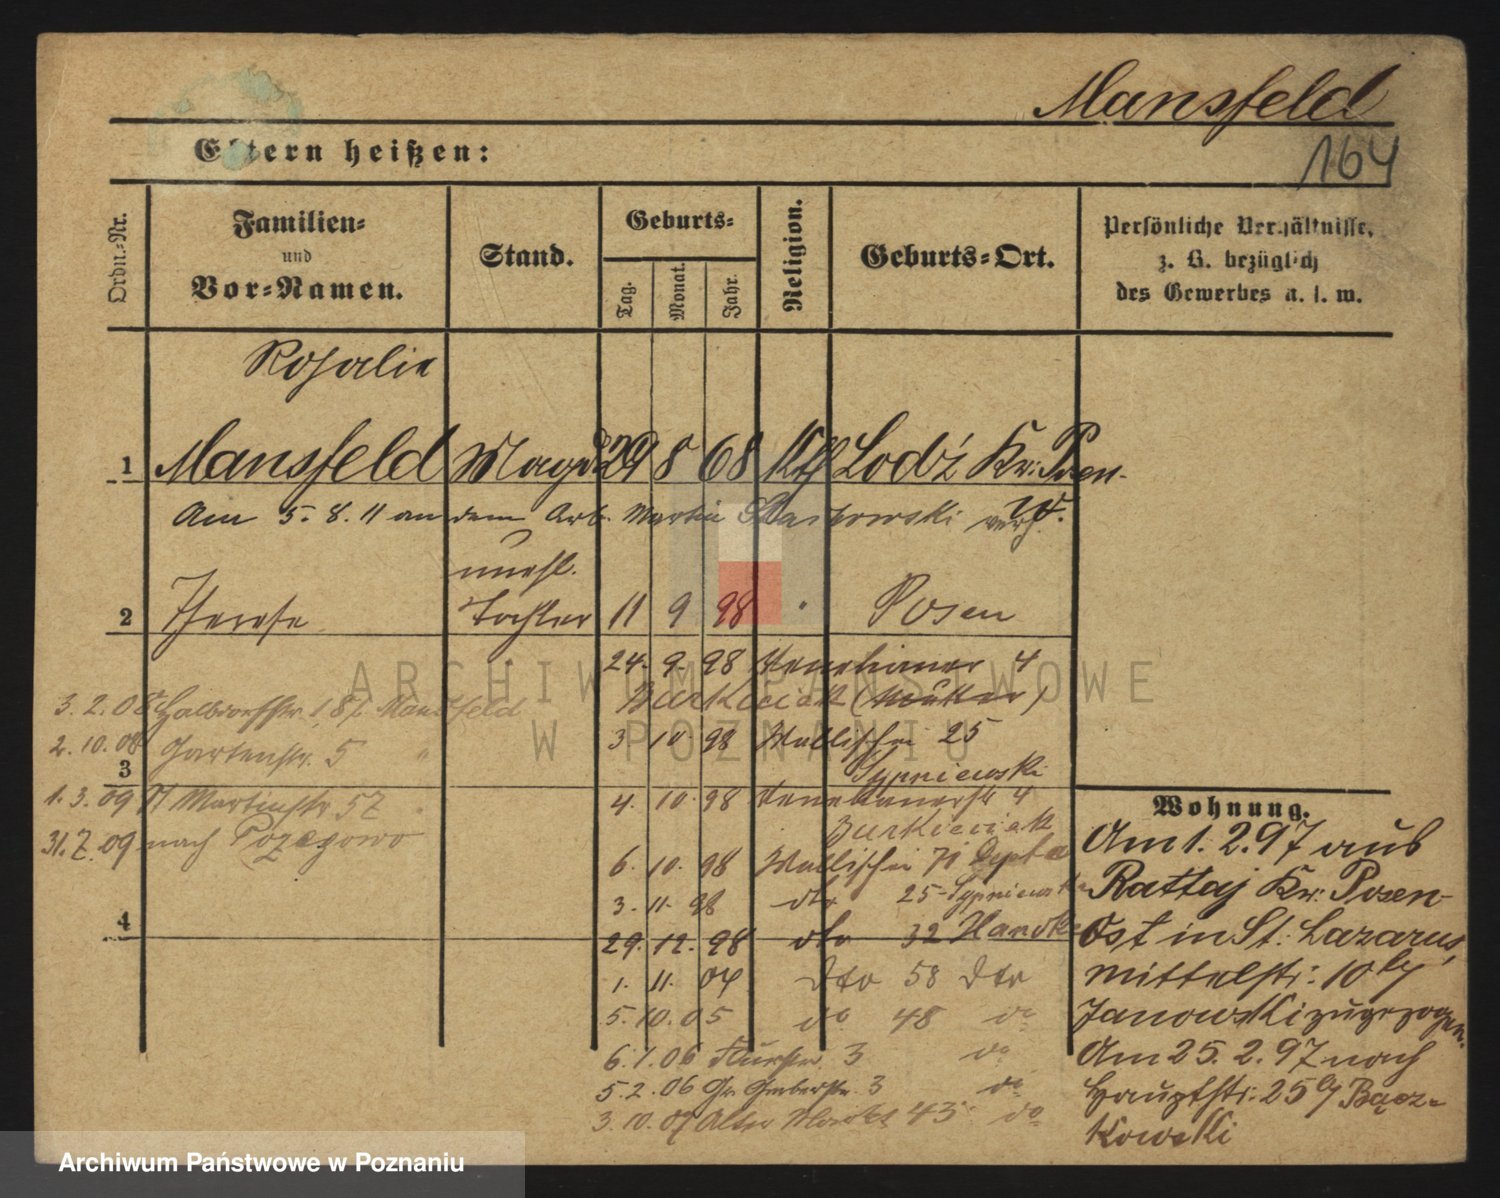 Mansfeld
164
Eltern heißen:
Ordn.-Nr.
Familien-
und
Vor-Namen.
Stand.
Geburts-
Tag.
Monat.
Jahr.
Religion.
Geburts-Ort.
Persönliche Verhältnisse,
z. B. bezüglich
des Gewerbes u. s. w.
Rosalie
1 Mansfeld Magd 29 8 68 Kth Lodź Kr. Posen
W.
Am 5. 8. 11 an dem Arb. Martin verh.
unehl.
2 Therese Tochter 11 9 98 Posen
24. 9. 98 Venetianer 4
Burkiciak (Mutter)
3 10 98 Wallischei 25
Sypniewski
4. 10. 98 Venetianerstr 4
Burkiciak
6. 10. 98 Wallischei 71 Depta
3. 11. 98 dto 25 Sypniewski
29. 12. 98 dto 32 Handke
1. 11. 04 dto 58 dto
5. 10. 05 do 48 do
6. 1. 06 3 do
5. 2. 06 Gr. Gerberstr. 3 do
3. 10. 07 Alter Markt 43 do
3. 2. 08 Halbdorfstr. 18 b/ Mansfeld
2. 10. 08 Gartenstr. 5 "
3
1. 3. 09 St Martinstr 57
31. 7. 09 nach Pożegowo
4
Wohnung.
Am 1. 2. 97 aus
Rattaj Kr. Posen-
Ost in St. Lazarus,
Mittelstr. 10 b/
Janowski zugezogen.
Am 25. 2. 97 nach
Hauptstr. 25 b/ Bącz-
kowski
ARCHIWUM PAŃSTWOWE
W POZNANIU
Archiwum Państwowe w Poznaniu